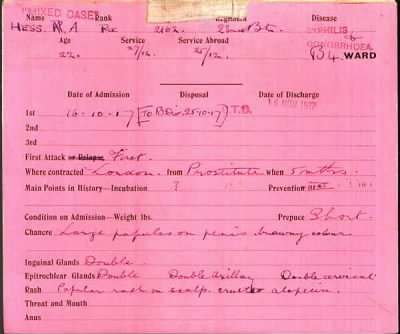 "MIXED CASE"
Name Rank Regiment Disease
HESS. A Pte 2162. 22nd Btn. SYPHILIS & GONORRHOEA.
Age Service Service Abroad
22. 27/12. 25/12. B4. WARD
Date of Admission Disposal Date of Discharge
1st 16-10-17 [To B Div. 25-10-17] T.D. 16 NOV 1917
2nd
3rd
First Attack or Relapse First.
Where contracted London. from Prostitute when 5 mths.
Main Points in History—Incubation ? Prevention
Condition on Admission—Weight lbs. Prepuce Short.
Chancre Large papules on penis brawny colour
Inguinal Glands Double.
Epitrochlear Glands Double Double axillary Double cervical
Rash Papular rash on scalp. alopecia.
Throat and Mouth
Anus